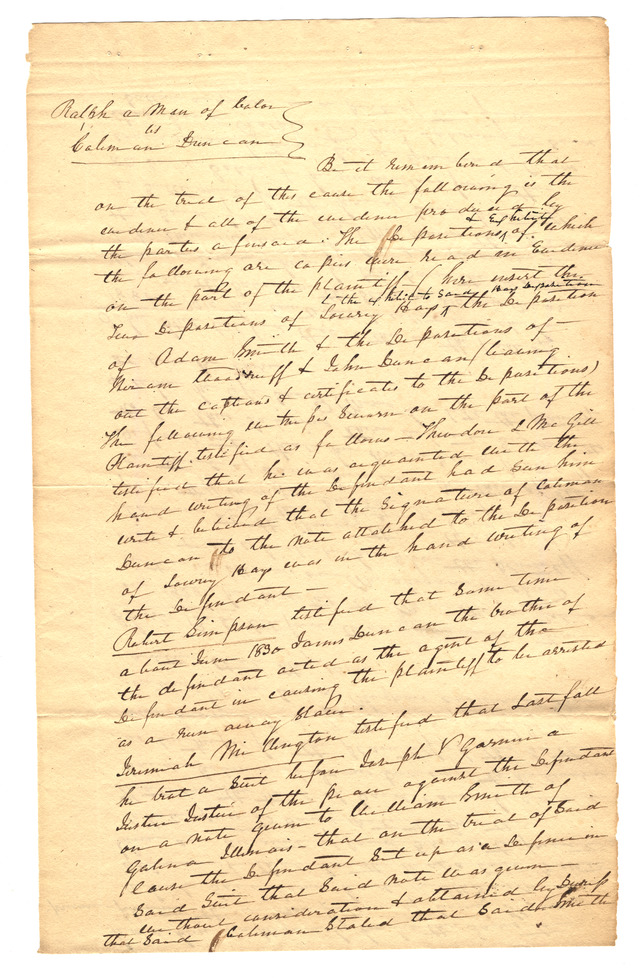 Ralph a Man of Color
vs
Coleman Duncan
Be it remembered that
on the trial of this cause the following is the
evidence & all of the evidence produced by
the parties aforesaid. The Depositions & Exhibits of which
the following are copies were read in Evidence
on the part of the plaintiff (here insert the
Two Depositions of Lowry Hays & the exhibit to Said Hays Deposition the Deposition
of Adam Smith & the Depositions of
Hiram Woodruff & John Duncan (leaving
out the captions & certificates to the Depositions)
The following witnesses Sworn on the part of the
Plaintiff testified as follows — Theodore L McGill
testified that he was acquainted with the
hand writing of the Defendant had seen him
write & believed that the Signature of Coleman
Duncan to the note attached to the Deposition
of Lowry Hays was in the hand writing of
the Defendant —
Robert Simpson testified that Some time
about June 1830 James Duncan the brother of
the defendant acted as the agent of the
Defendant in causing the plaintiff to be arrested
as a run away Slave.
Jeremiah Millington testified that Last fall
he brot a Suit before Joseph V Garnier a
Justice of the peace against the Defendant
on a note given to William Smith of
Galena Illinois — that on the trial of Said
Cause the Defendant Set up as a Defence in
Said Suit that Said note was given —
without consideration & obtained by Duress
that Said Coleman Stated that Said Smith